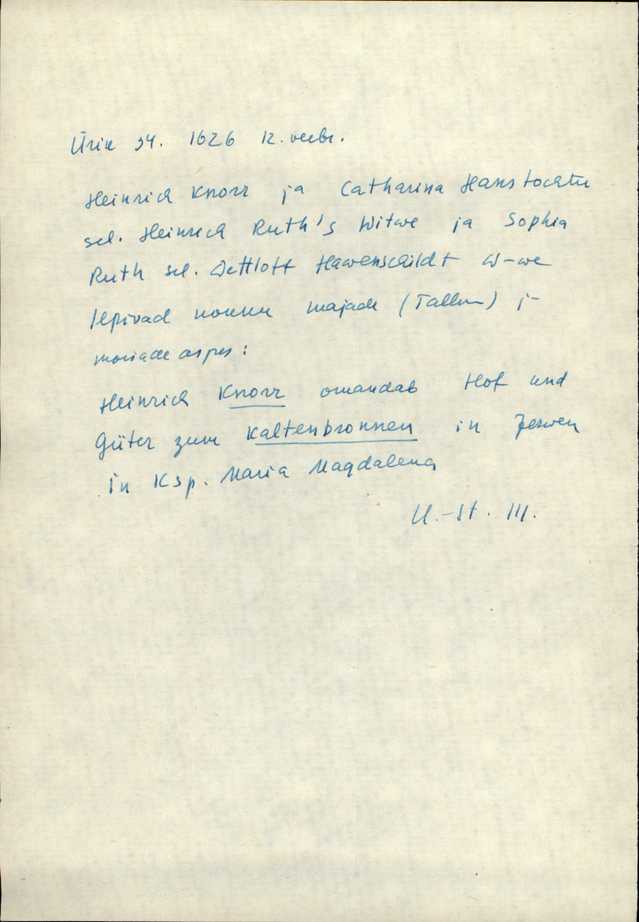 Ürik 34. 1626 12. veebr.
Heinrich Knorr ja Catharina Hans tochter
sel. Heinrich Ruth's Witwe ja Sophia
Ruth sel. Dettloff Hawenschildt W-we
lepivad nonnu majade (Tallinn) j-
moisade asjus:
Heinrich Knorr omandab Hof und
Güter zum Kaltenbronnen in Jerwen
in Ksp. Maria Magdalena
U.-St. III.